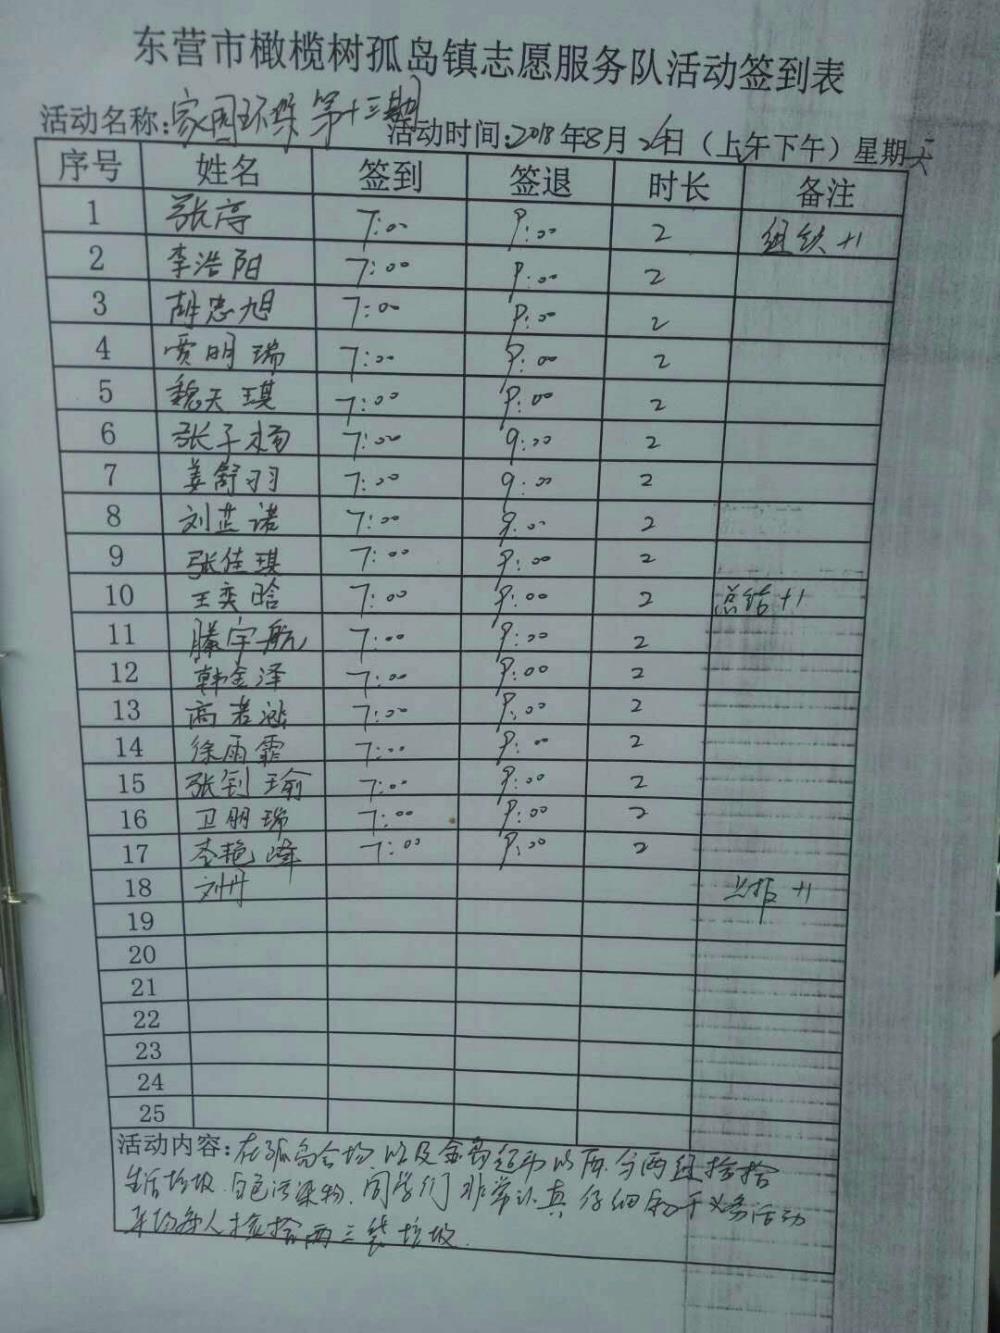 东营市橄榄树孤岛镇志愿服务队活动签到表
活动名称:家园环 第十三期
活动时间:2018年8月26日（上午下午）星期天
序号 姓名 签到 签退 时长 备注
1 张亭 7:00 9:00 2 组织+1
2 李浩阳 7:00 9:00 2
3 胡忠旭 7:00 9:00 2
4 贾明瑞 7:00 9:00 2
5 魏天琪 7:00 9:00 2
6 张子杨 7:00 9:00 2
7 姜舒羽 7:00 9:00 2
8 刘芷诺 7:00 9:00 2
9 张佳琪 7:00 9:00 2
10 王奕晗 7:00 9:00 2 总结+1
11 滕宇航 7:00 9:00 2
12 韩金泽 7:00 9:00 2
13 高若 7:00 9:00 2
14 徐雨霏 7:00 9:00 2
15 张钊瑜 7:00 9:00 2
16 卫明瑞 7:00 9:00 2
17 李艳峰 7:00 9:00 2
18 刘丹 上报+1
19
20
21
22
23
24
25
活动内容:在孤岛会场以及金岛超市以西,分两组捡拾
生活垃圾,白色污染物,同学们非常认真仔细 义务活动
平均每人捡拾两三袋垃圾.